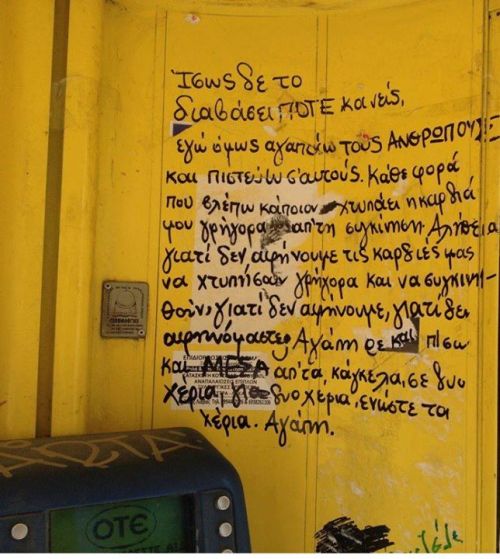 Ίσως δε το
διαβάσει ΠΟΤΕ κανείς,
εγώ όμως αγαπάω τους ΑΝΘΡΩΠΟΥΣ
και πιστεύω σ'αυτούς. Κάθε φορά
που βλέπω κάποιον χτυπάει η καρδιά
μου γρήγορα απ'τη συγκίνηση Αλήθεια
γιατί δεν αφήνουμε τις καρδιές μας
να χτυπήσαν γρήγορα και να συγκινη-
θούν, γιατί δεν αφήνουμε, γιατί δεν
αφηνόμαστε, Αγάπη ρε και πίσω
και ΜΕΣΑ απ'τα κάγκελα, σε δυο
χέρια, δυο χέρια, ενώστε τα
χέρια. Αγάπη.
ΑΝΑΠΑΛΑΙΩΣΕΙΣ ΕΠΙΠΛΩΝ
ΟΤΕ